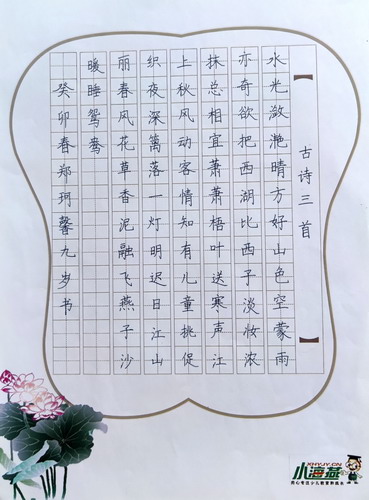 【古诗三首】
水光潋滟晴方好山色空蒙雨
亦奇欲把西湖比西子淡妆浓
抹总相宜萧萧梧叶送寒声江
上秋风动客情知有儿童挑促
织夜深篱落一灯明迟日江山
丽春风花草香泥融飞燕子沙
暖睡鸳鸯
癸卯春郑珂馨九岁书
XHYJY.CN
小海燕